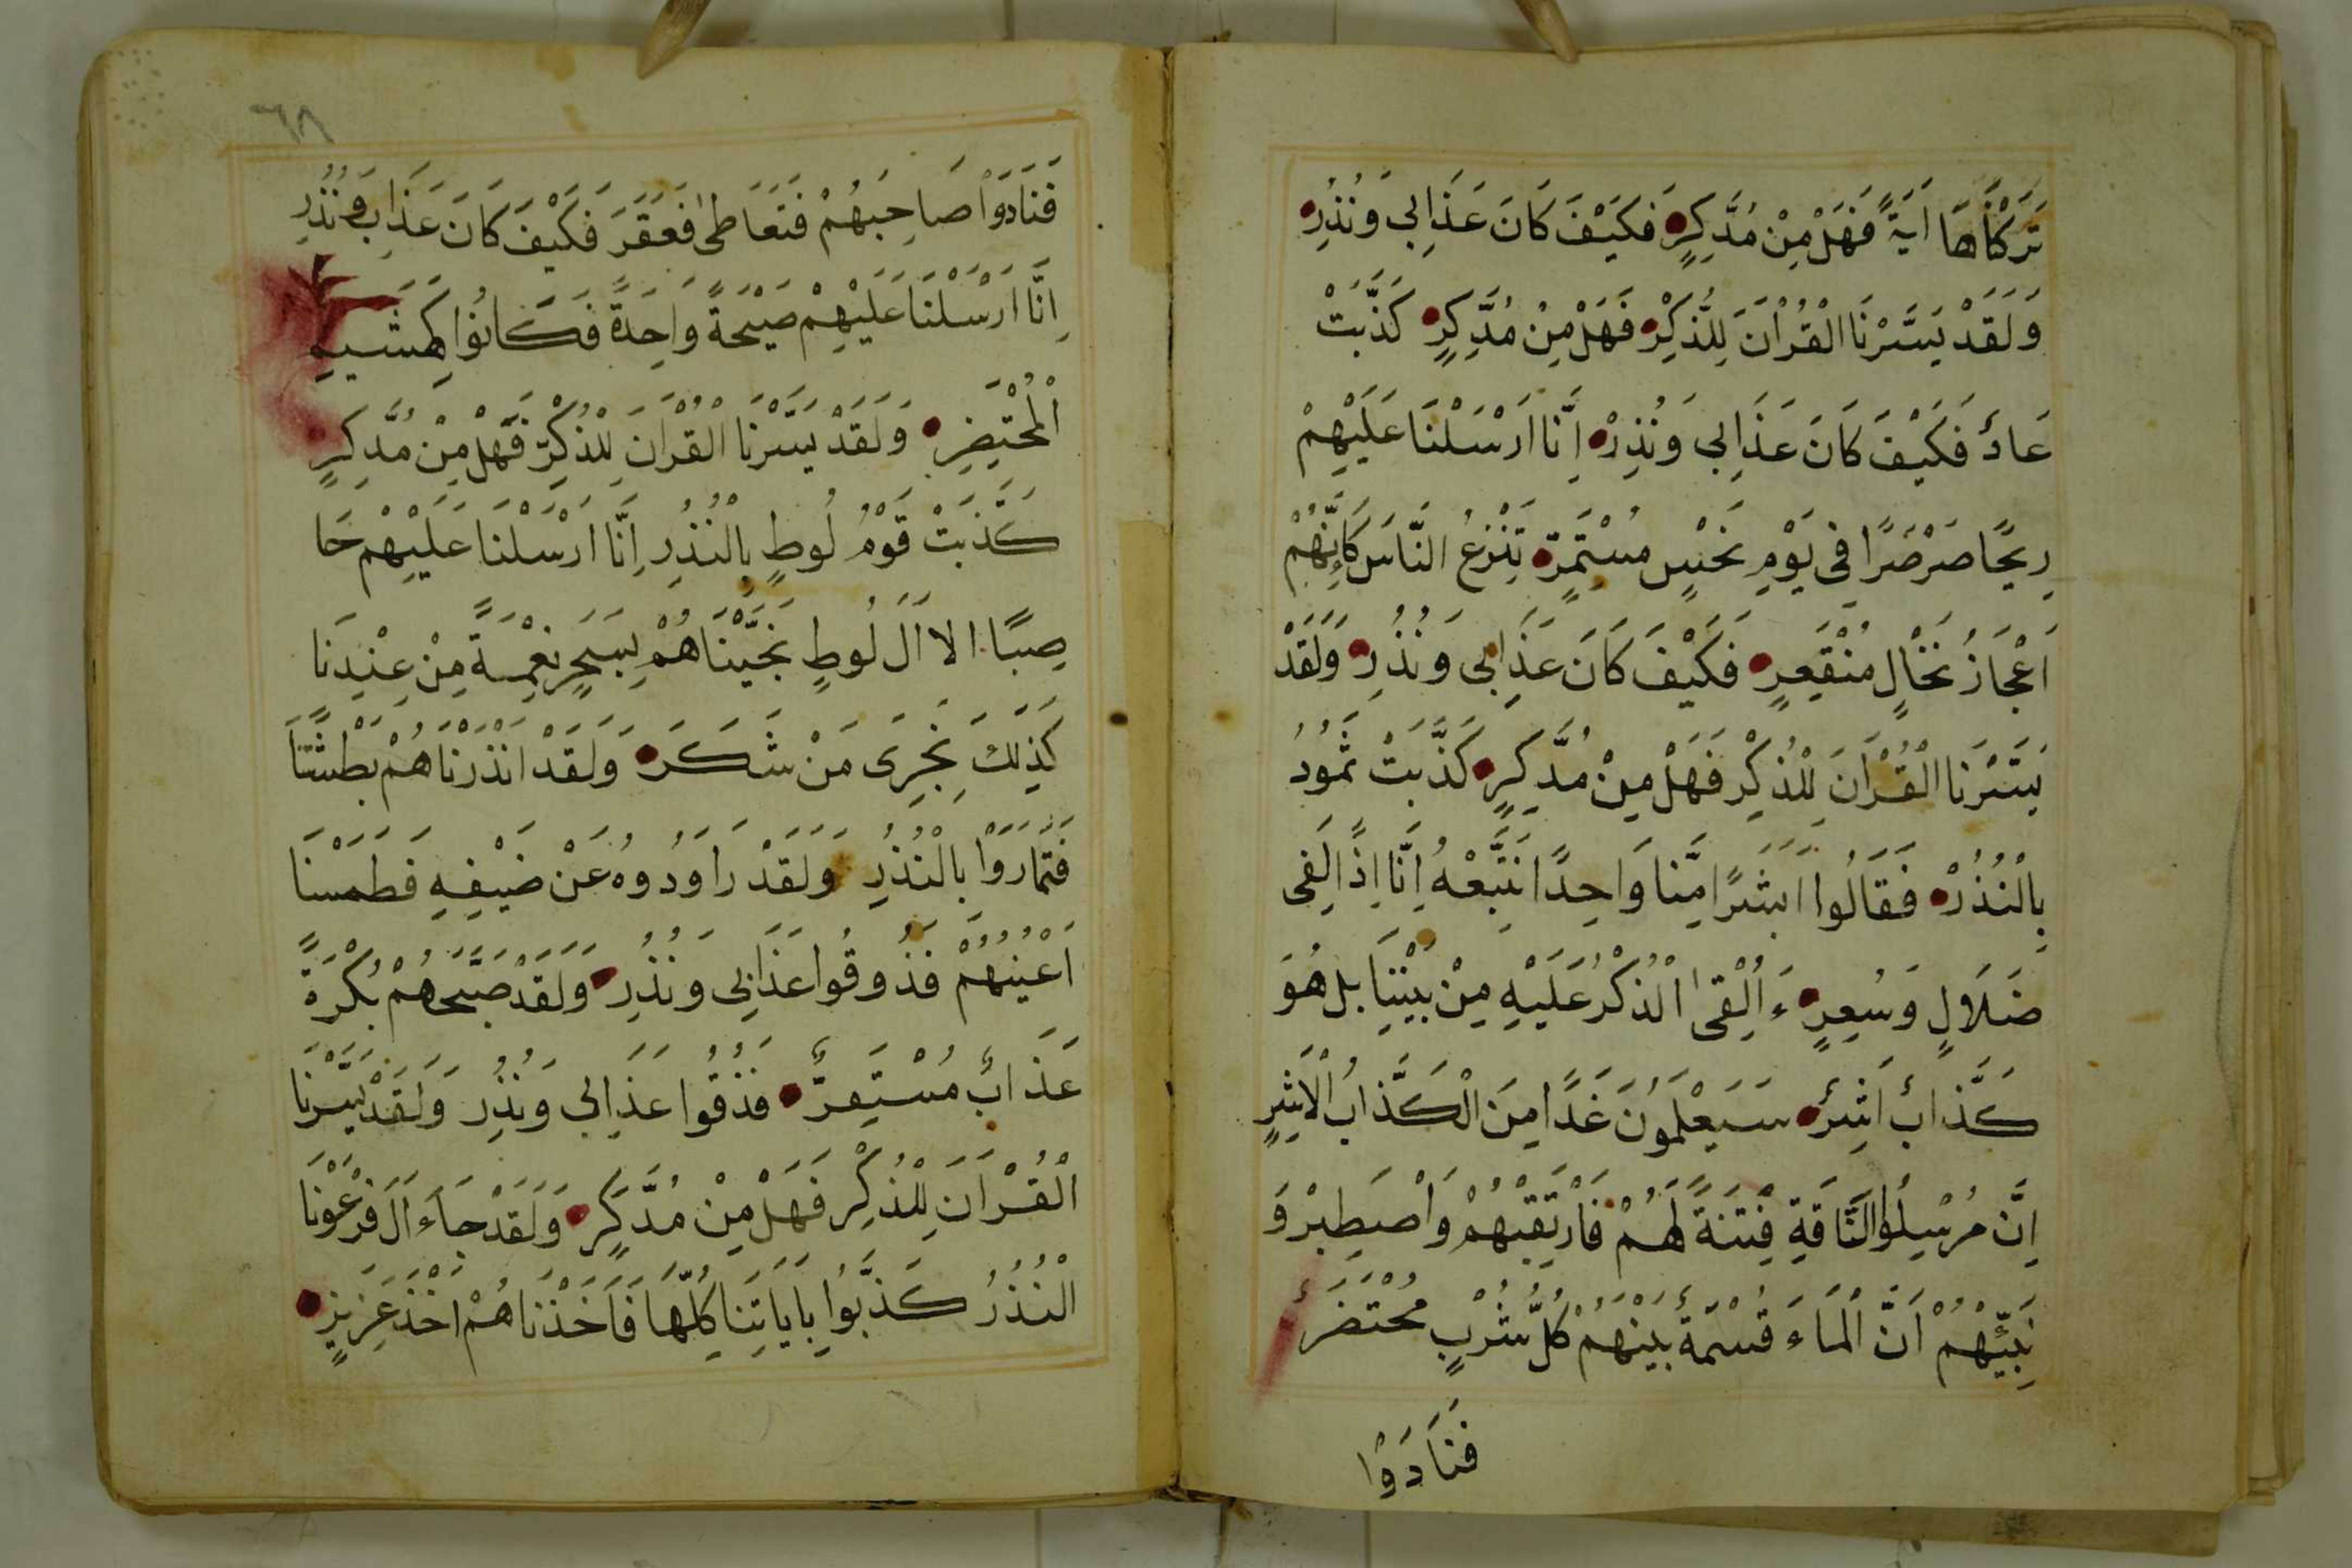 تَرَكْنَاهَا اَيَةً فَهَلْ مِنْ مُدَّكِرٍ فَكَيْفَ كَانَ عَذَابِي وَنُذُرِ
وَلَقَدْ يَسَّرْنَا الْقُرْاَنَ لِلذِّكْرِ فَهَلْ مِنْ مُدَّكِرٍ كَذَّبَتْ
عَادٌ فَكَيْفَ كَانَ عَذَابِي وَنُذُرِ اِنَّا اَرْسَلْنَا عَلَيْهِمْ
رِيحًا صَرْصَرًا فِي يَوْمِ نَحْسٍ مُسْتَمِرٍّ تَنْزِعُ النَّاسَ كَاَنَّهُمْ
اَعْجَازُ نَخْالٍ مُنْقَعِرٍ فَكَيْفَ كَانَ عَذَابِي وَنُذُرِ وَلَقَدْ
يَسَّرْنَا الْقُرْاَنَ لِلذُكْرِ فَهَلْ مِنْ مُدَّكِرٍ كَذَّبَتْ ثَمُودُ
بِالْنُذُرْ فَقَالُوا ابَشَرًا مِنَّا وَاحِدًا نَتَّبِعْهُ اِنَّا اِذًا لَفِى
ضَلَالٍ وَسُعِرٍ ءَاُلْقِىَ الْذُكْرُ عَلَيْهِ مِنْ بَيْنِنَا بل هُوَ
كَذَّابٌ اَشِرٌ سَيَعْلَمُونَ غَدًا مِنَ الْكَذَّابُ الْاَشِرِ
اِنَّ مُرْسِلُوا النَّاقَةِ فِتْنَةً لَهُمْ فَارْتَقِبْهُمْ وَاصْطَبِرْ وَ
نَبِّئْهُمْ اَنَّ الْمَاءَ قُسْمَةٌ بَيْنَهُمْ كُلُّ شُرْبٍ مُحْتَضَرٌ
فَنَادَوْا
٦٨
فَنَادَوْا صَاحِبَهُمْ فَتَعَاطَىٰ فَعَقَرَ فَكَيْفَ كَانَ عَذَابِ وَنُذُرِ
اِنَّا اَرْسَلْنَا عَلَيْهِمْ صَيْحَةً وَاحِدَةً فَكَانُوا كَهَشِيمِ
الْمُحْتَضِرِ وَلَقَدْ يَسَّرْنَا الْقُرْانَ لِلْذُكِرِ فَهَلْ مِنْ مُدَّكِرٍ
كَذَّبَتْ قَوْمُ لُوطٍ بِالْنُذُرِ اِنَّا اَرْسَلْنَا عَلَيْهِمْ حَا
صِبًا الا اَلَ لُوطٍ نَجَّيْنَاهُمْ بِسَحَرٍ نِعْمَةً مِنْ عِنْدِنَا
كَذَلِكَ نَجْزِى مَنْ شَكَرَ وَلَقَدْ انْذَرْنَاهُمْ بَطْشَتَنَا
فَتَمَارَوْا بِالْنُذُرِ وَلَقَدْ رَاوَدُوهُ عَنْ ضَيْفِهِ فَطَمَسْنَا
اَعْيُنَهُمْ فَذُوقُوا عَذَابِي وَنُذُرِ وَلَقَدْ صَبَّحَهُمْ بُكْرَةً
عَذَابٌ مُسْتَقِرٌّ فَذُقُوا عَذَابِي وَنُذُرِ وَلَقَدْ يَسَّرْنَا
الْقُرْاَنَ لِلْذُكِرِ فَهَلْ مِنْ مُدَّكِرٍ وَلَقَدْ جَاءَ اَلَ فِرْعَوْنَا
الْنُذُرُ كَذَّبُوا بِاَيَاتِنَا كُلِّهَا فَاَخَذْنَاهُمْ اَخْذَ عَزِيزٍ